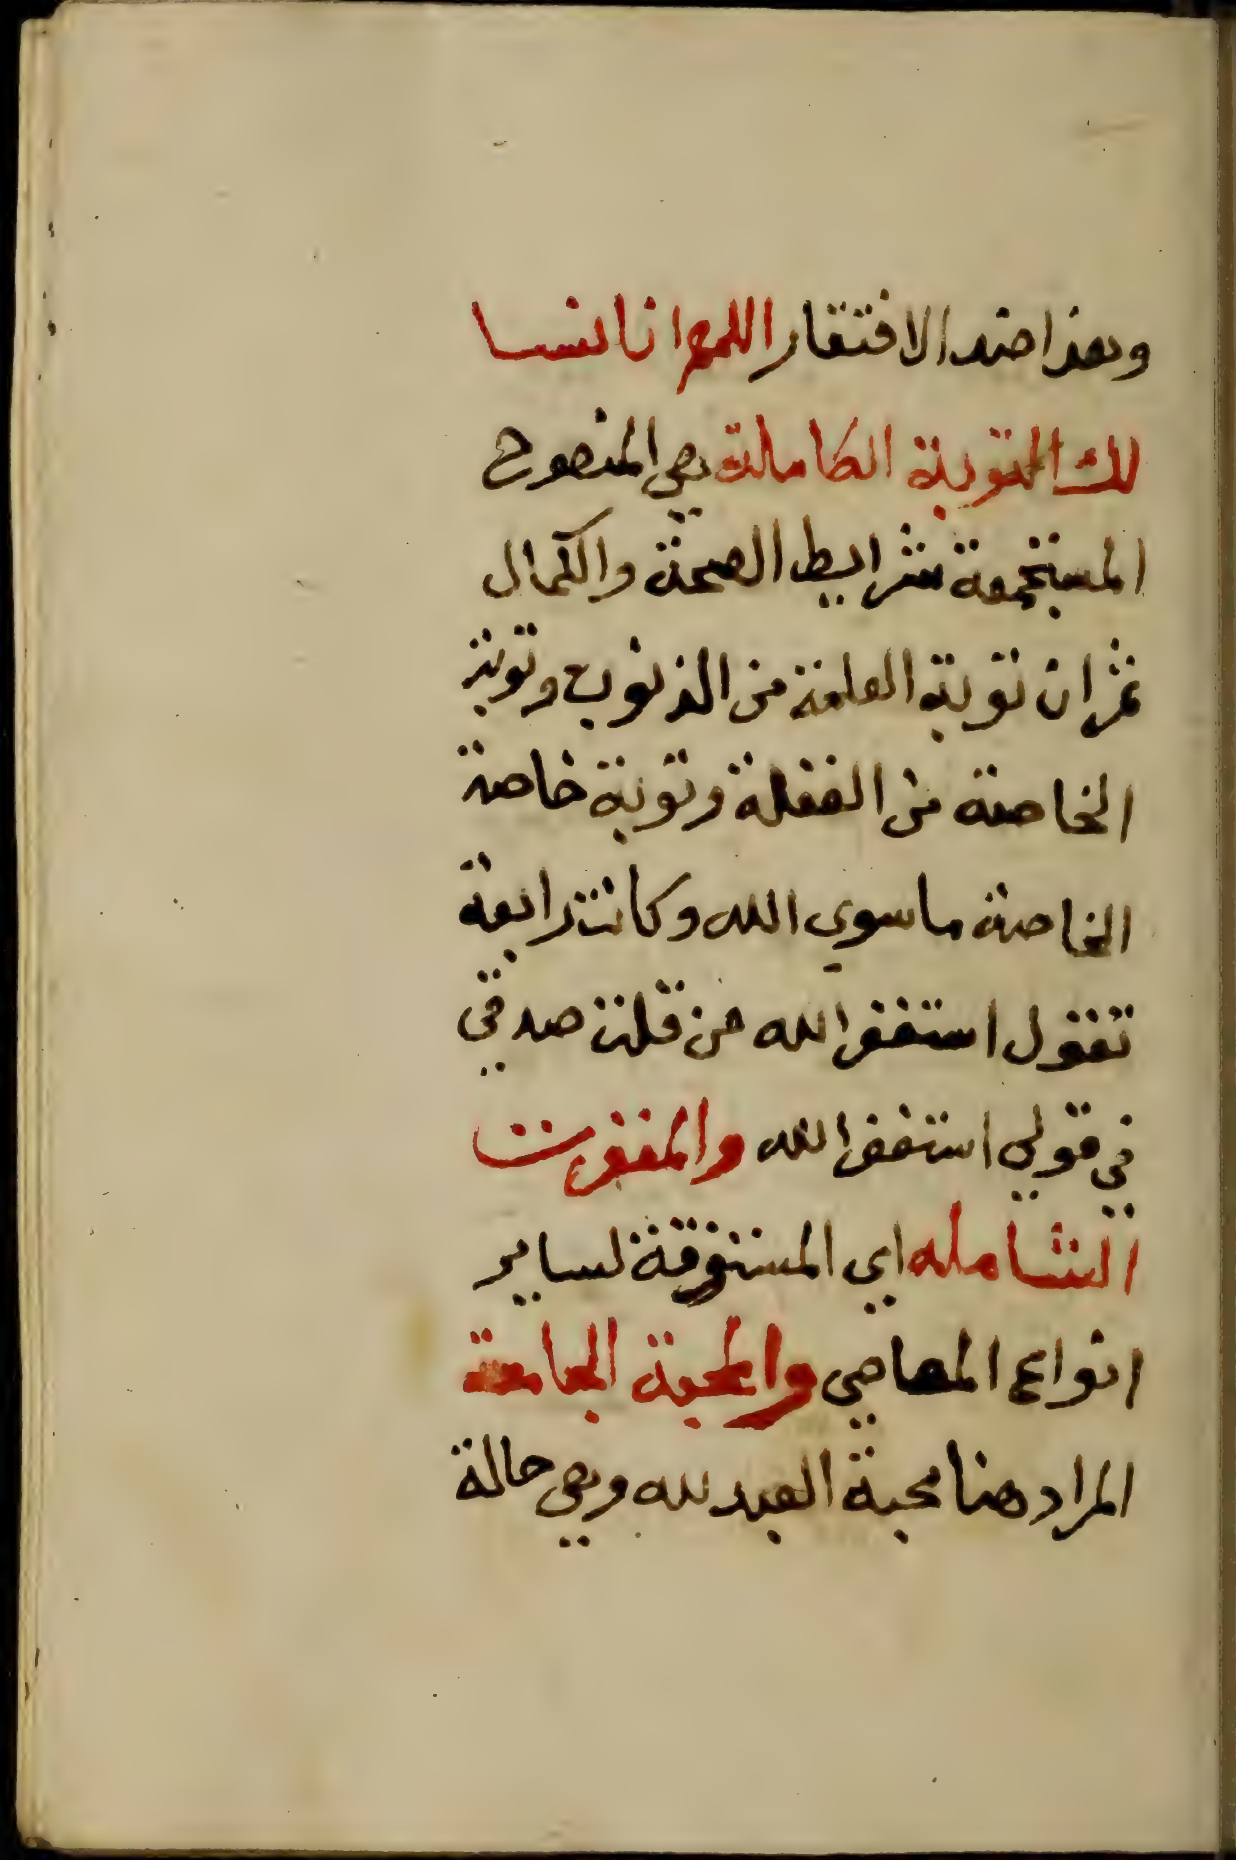 وهذا ضد الافتقار اللهم انا نسا
لك التوبة الكاملة هي النصوح
المستجمعة شرايط الصحة والكمال
ثم ان توبة العامة من الذنوب وتوبة
الخاصة من الغفلة وتوبة خاصة
الخاصة ما سوي الله وكانت رابعة
تقول استغفر الله من قلة صدقي
في قولي استغفر الله والمغفرت
الشامله اي المستغرقة لساير
انواع المعاصي والمحبة الجامعة
المراد هنا محبة العبد لله وهي حالة